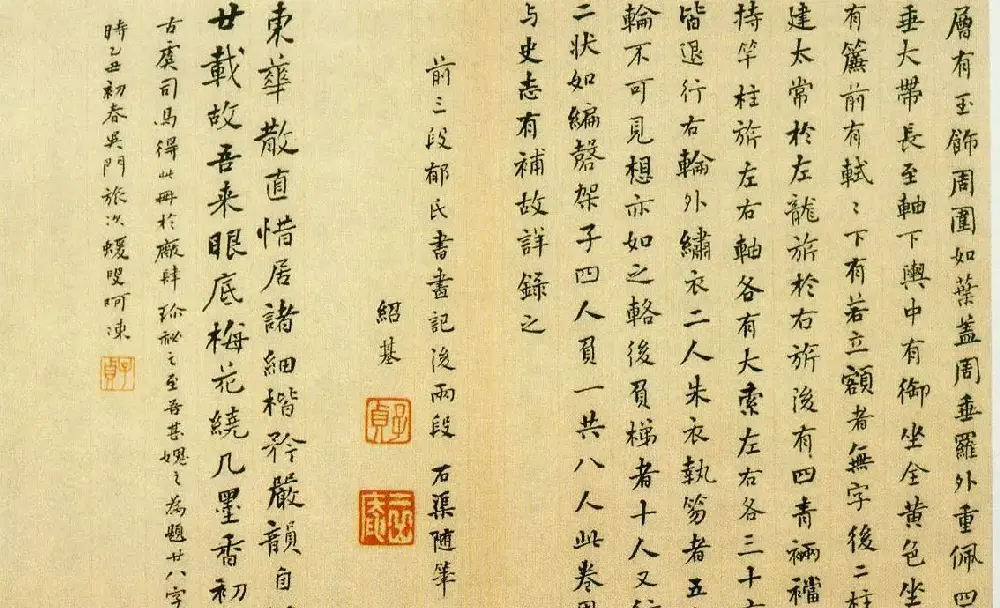 層有玉飾周圍如葉蓋周垂羅外重佩四
垂大帶長至軸下輿中有御坐全黄色坐
有簾前有軾〻下有若立額者無字後二柱
建太常於左龍旂於右旂後有四青裲襠
持竿柱旂左右軸各有大索左右各三十
皆退行右輪外繡衣二人朱衣執笏者五
輪不可見想亦如之輅後負梯者十人又行
二状如編磬架子四人負一共八人此卷
与史志有補故詳錄之
前三段郁氏書畫記後兩段石渠随筆
紹基
子貞
東華散直惜居諸細楷矜嚴韻自
廿載故吾来眼底梅花繞几墨香初
古虞司馬得此冊於廠肆珍秘之至吾甚媿之為題廿八字
時乙丑初春吳門旅次蝯叟呵凍
子貞